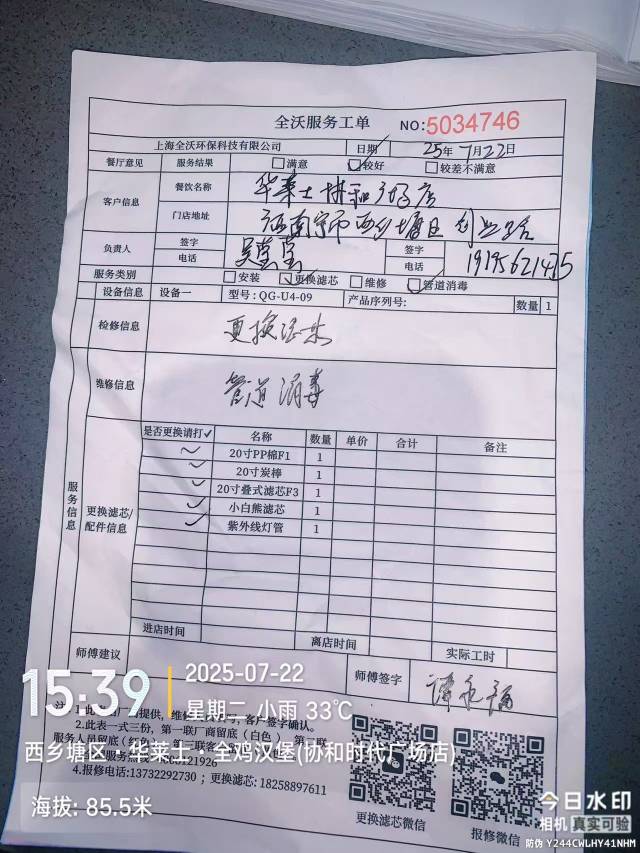 全沃服务工单 NO:5034746
上海全沃环保科技有限公司 日期 25年7月22日
餐厅意见 服务结果 满意 较好 较差不满意
客户信息 餐饮名称 华莱士协和广场店
门店地址 南宁市西乡塘区创业路
负责人 签字 签字
电话 电话
服务类别 安装 更换滤芯 维修 管道消毒
设备信息 设备一 型号:QG-U4-09 产品序列号: 数量 1
检修信息 更换滤芯
维修信息 管道消毒
服务信息
更换滤芯/配件信息
是否更换请打✓ 名称 数量 单价 合计 备注
20寸PP棉F1 1
20寸炭棒 1
20寸叠式滤芯F3 1
小白熊滤芯 1
紫外线灯管 1
进店时间 离店时间 实际工时
师傅建议 师傅签字
15:39 2025-07-22
星期二 小雨 33℃
西乡塘区·华莱士·全鸡汉堡(协和时代广场店)
海拔: 85.5米
客户签字确认。
2.此表一式三份，第一联厂商留底（白色）
4.报修电话:13732292730 ；更换滤芯: 18258897611
更换滤芯微信 报修微信
今日水印
相机 真实可验
防伪 Y244CWLHY41NHM